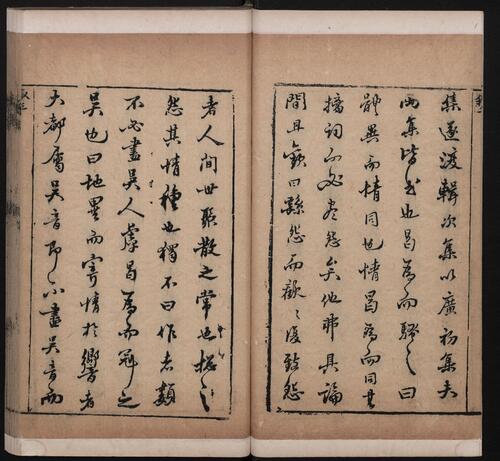 集遂渡輯次集以廣初集夫
兩集皆也曷為而騷之曰
異而情同也情曷為而同其
摛詞必盡怨矣他弗具論
間且歡曰繇怨而歡之復致怨
者人間世聚散之常也揔之
怨其情種也獨不曰作者類
不必盡吳人虖曷為而冠之
吳也曰地異而寄情於響者
大都屬吳音即不盡吳音而